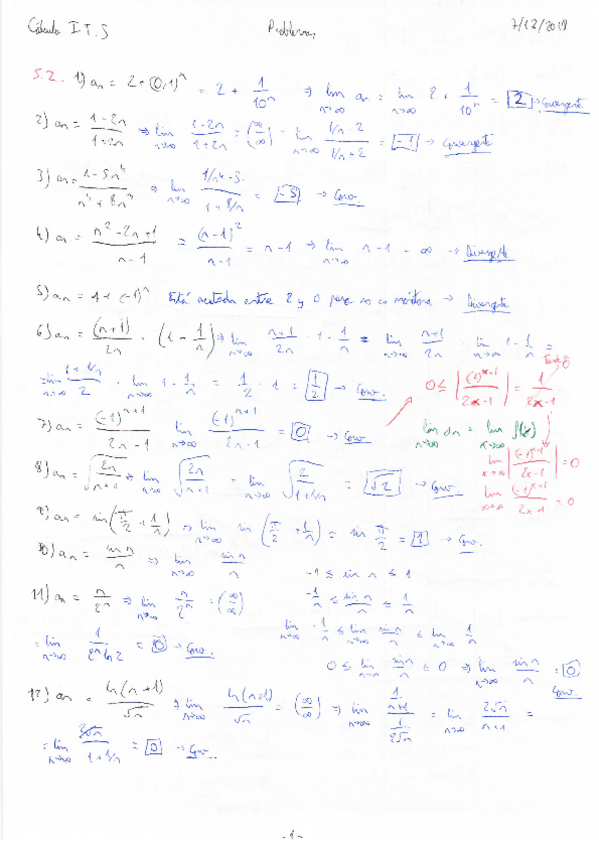 Cálculo I T.5 Problemas 7/12/2019
5.2. 1) an = 2 + (0,1)^n = 2 + 1/10^n ⇒ lim n→∞ an = lim n→∞ 2 + 1/10^n = 2 → Convergente
2) an = (1-2n)/(1+2n) ⇒ lim n→∞ (1-2n)/(1+2n) = (∞/∞) = lim n→∞ (1/n - 2)/(1/n + 2) = -1 → Convergente
3) an = (1-5n^4)/(n^4+8n^3) ⇒ lim n→∞ (1/n^4 - 5)/(1+8/n) = -5 → Conv.
4) an = (n^2-2n+1)/(n-1) = (n-1)^2/(n-1) = n-1 ⇒ lim n→∞ n-1 = ∞ → Divergente
5) an = 1 + (-1)^n Está acotada entre 2 y 0 pero no es monótona → Divergente
6) an = (n+1)/2n · (1 - 1/n) ⇒ lim n→∞ (n+1)/2n · 1 - 1/n = lim n→∞ (n+1)/2n · lim n→∞ 1 - 1/n =
= lim n→∞ (1+1/n)/2 · lim n→∞ 1 - 1/n = 1/2 · 1 = 1/2 → Conv.
0 ≤ |(-1)^(x+1)/(2x-1)| = 1/(2x-1)
7) an = (-1)^(n+1)/(2n-1) lim n→∞ (-1)^(n+1)/(2n-1) = 0 → Conv
lim n→∞ an = lim x→∞ f(x)
lim x→∞ |(-1)^(x+1)/(2x-1)| = 0
lim x→∞ (-1)^(x+1)/(2x-1) = 0
8) an = √(2n/(n+1)) ⇒ lim n→∞ √(2n/(n+1)) = lim n→∞ √(2/(1+1/n)) = √2 → Conv.
9) an = sin(π/2 + 1/n) ⇒ lim n→∞ sin(π/2 + 1/n) = sin π/2 = 1 → Conv.
10) an = sin n/n ⇒ lim n→∞ sin n/n
-1 ≤ sin n ≤ 1
-1/n ≤ sin n/n ≤ 1/n
lim n→∞ -1/n ≤ lim n→∞ sin n/n ≤ lim n→∞ 1/n
0 ≤ lim n→∞ sin n/n ≤ 0 ⇒ lim n→∞ sin n/n = 0
Conv.
11) an = n/2^n ⇒ lim n→∞ n/2^n = (∞/∞)
= lim n→∞ 1/(2^n ln 2) = 0 → Conv.
12) an = ln(n+1)/√n ⇒ lim n→∞ ln(n+1)/√n = (∞/∞) ⇒ lim n→∞ (1/(n+1))/(1/(2√n)) = lim n→∞ 2√n/(n+1) =
= 0 → Conv.
-1-